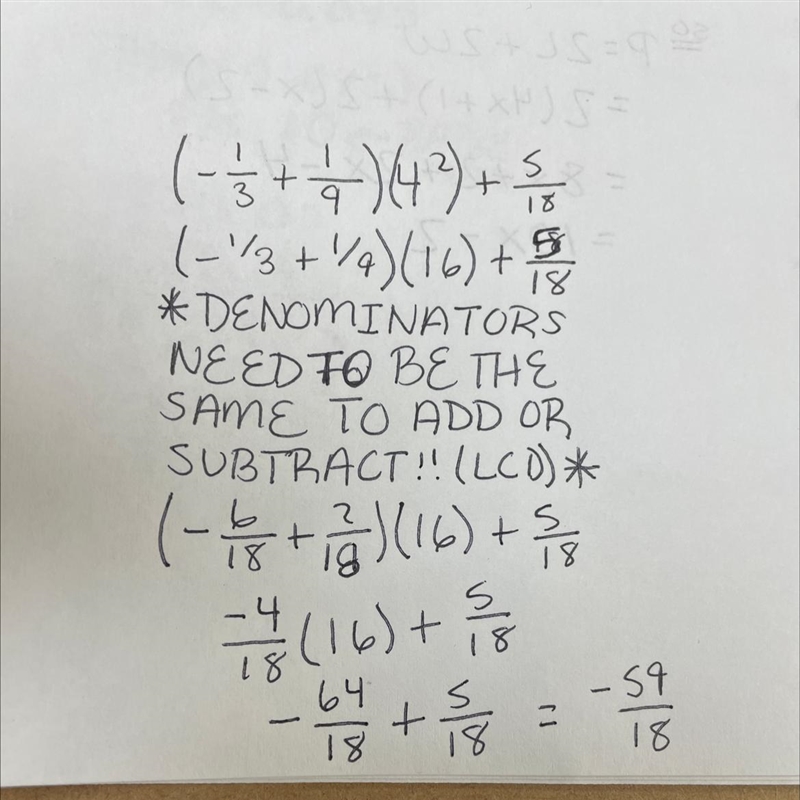 (-1/3 + 1/9)(4²) + 5/18
(-1/3 + 1/9)(16) + 5/18
*DENOMINATORS
NEED TO BE THE
SAME TO ADD OR
SUBTRACT!! (LCD)*
(-6/18 + 2/18)(16) + 5/18
-4/18 (16) + 5/18
-64/18 + 5/18 = -59/18